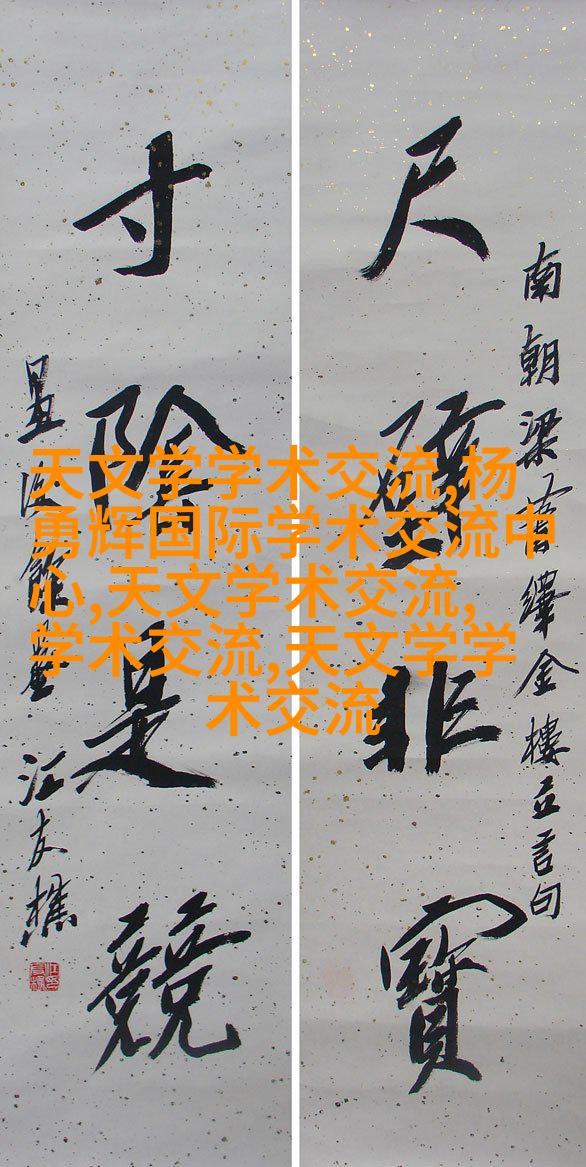 尺璧非寶
南朝梁蕭繹金樓立言句
寸陰是競
汪友樵
天文学学术交流,杨
勇辉国际学术交流中
心,天文学术交流,
学术交流,天文学学
术交流